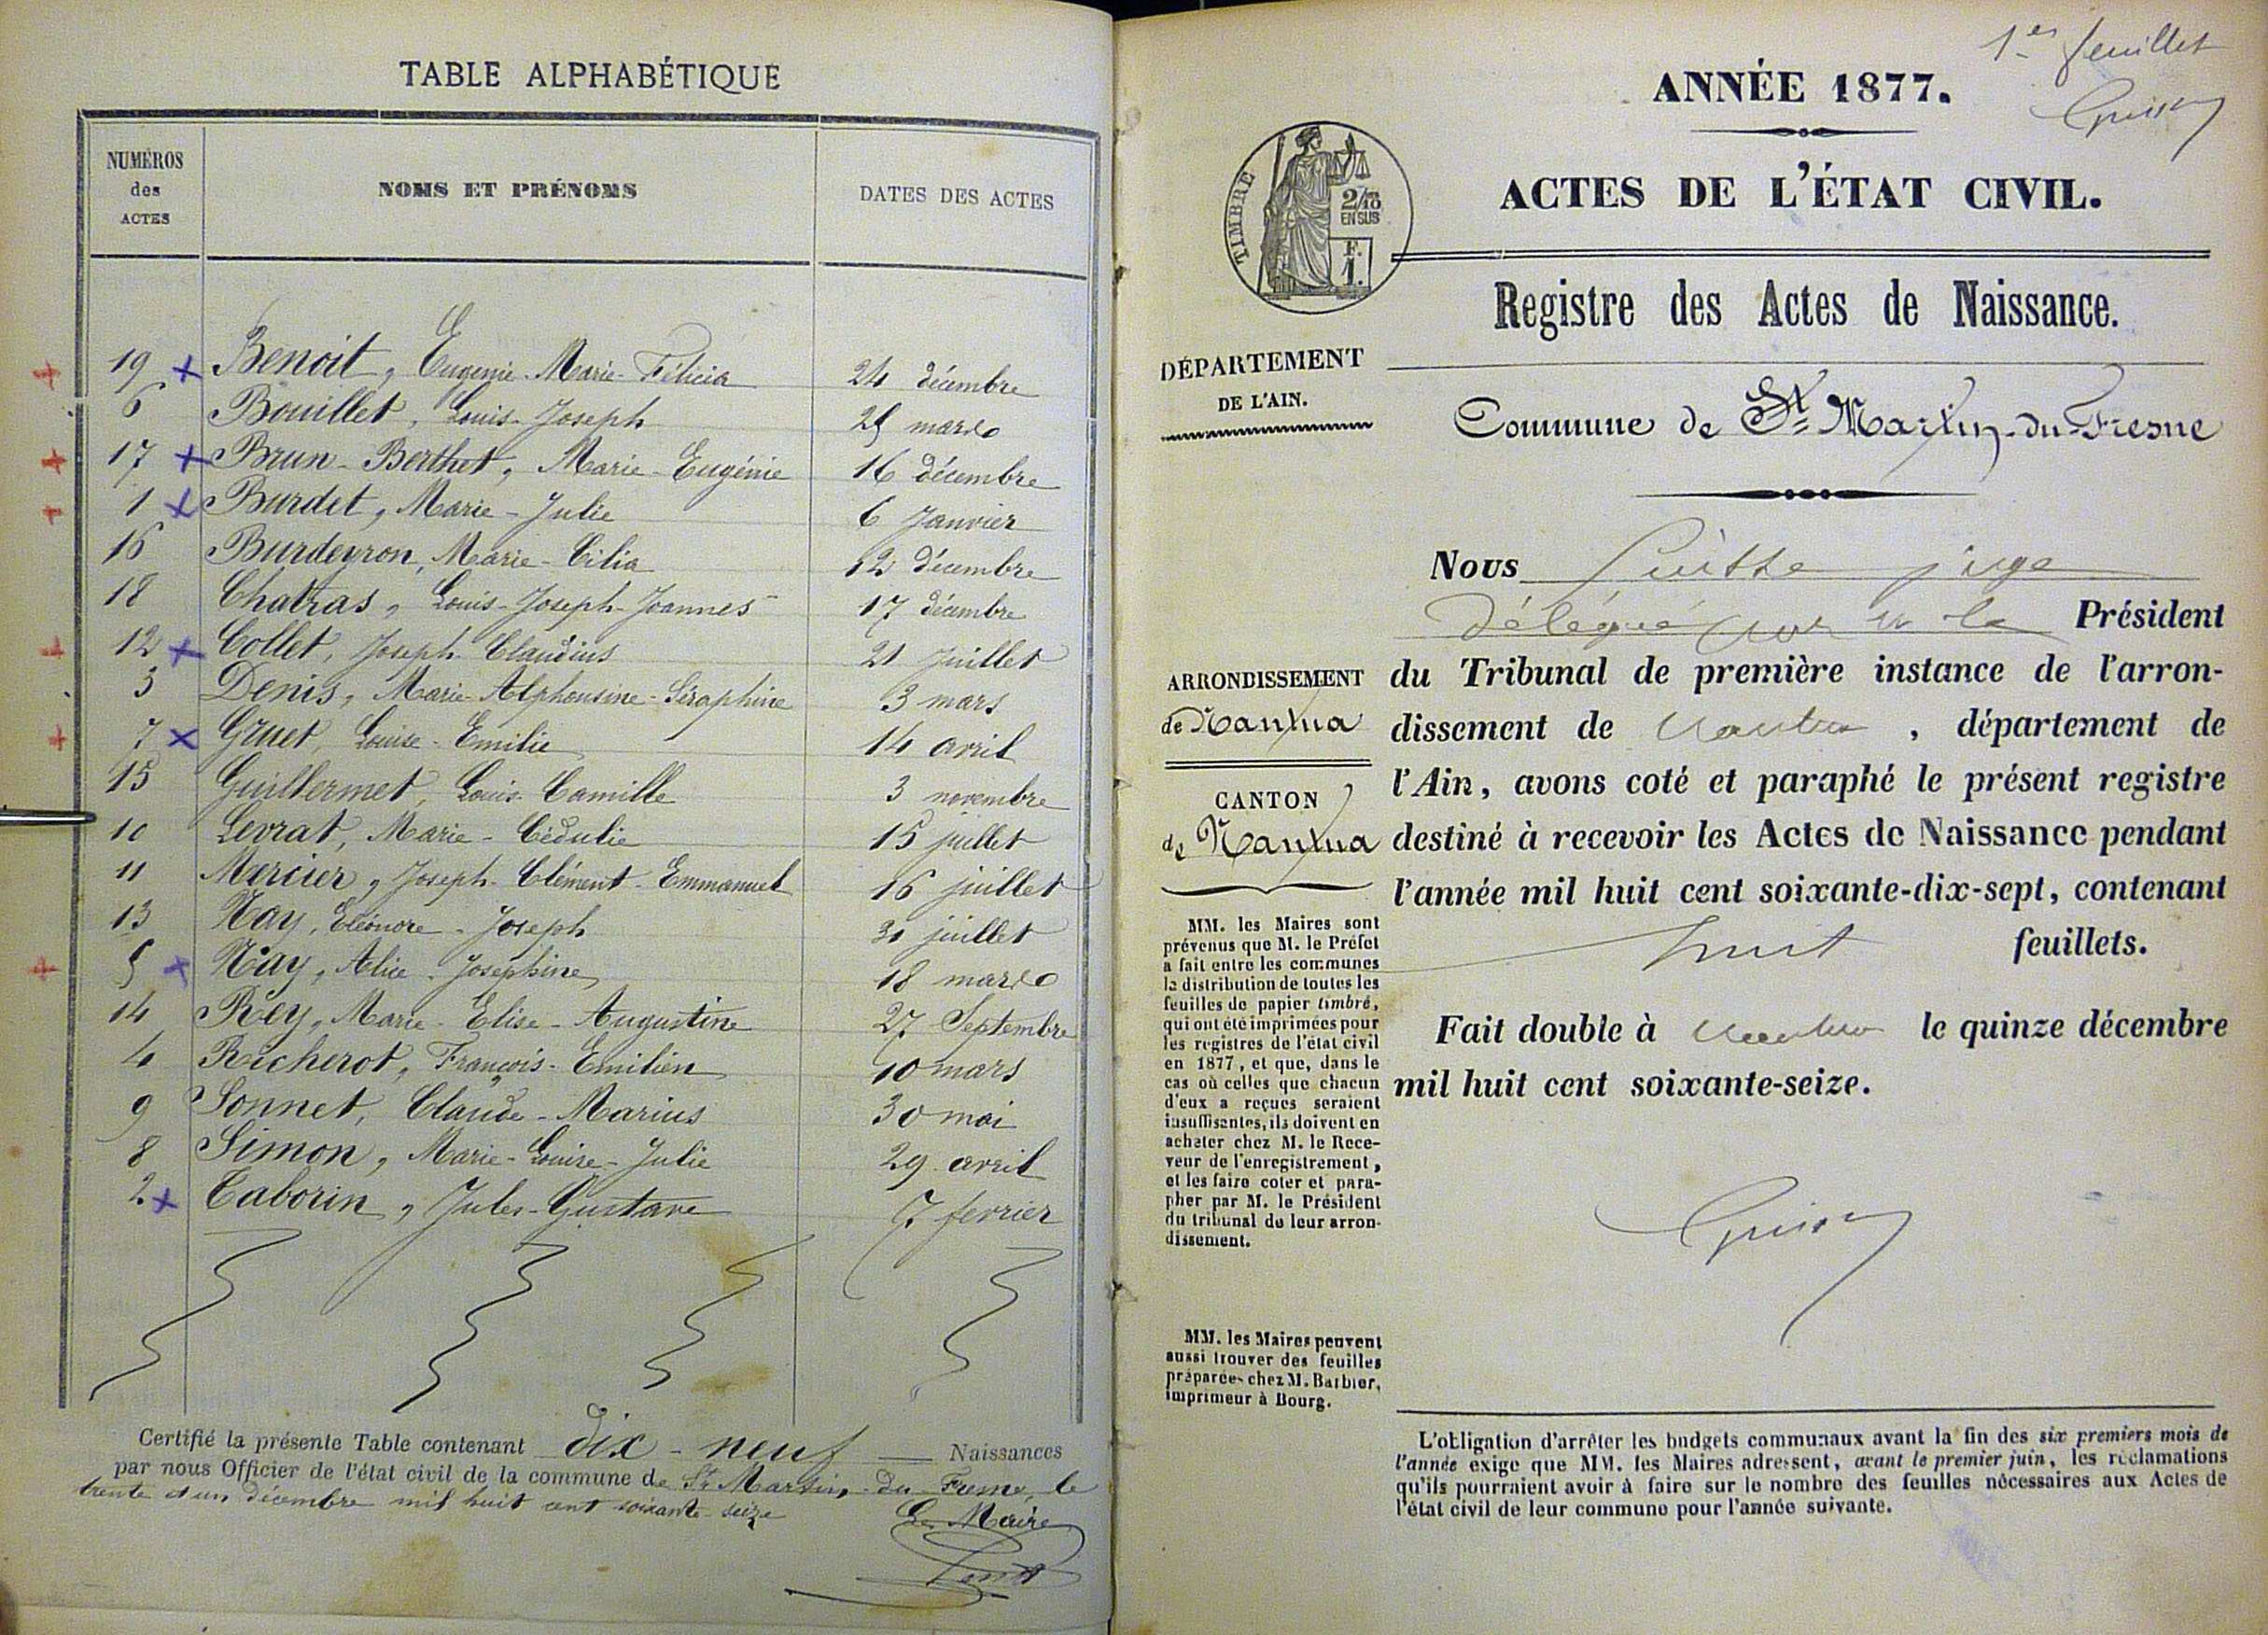 TABLE ALPHABÉTIQUE
NUMÉROS des ACTES
NOMS ET PRÉNOMS
DATES DES ACTES
19 Benoit, Eugenie-Marie-Félicia 24 décembre
6 Bouillet, Louis-Joseph 25 mars
17 Brun-Berthet, Marie-Eugénie 16 décembre
1 Burdet, Marie-Julie 6 Janvier
16 Burdeyron, Marie-Cilia 12 décembre
18 Chatras, Louis-Joseph-Joannes 17 décembre
12 Collet, Joseph Claudius 21 Juillet
3 Denis, Marie-Alphonsine-Séraphine 3 mars
7 Gruet, Louise-Emilie 14 avril
15 Guillermet, Louis-Camille 3 novembre
10 Levrat, Marie-Cédulie 15 juillet
11 Mercier, Joseph-Clément-Emmanuel 16 juillet
13 Nay, Eléonore-Joseph 31 juillet
5 Nay, Alice-Josephine 18 mars
14 Rey, Marie-Elise-Augustine 27 Septembre
4 Richerot, François-Emilien 10 mars
9 Sonnet, Claude-Marius 30 mai
8 Simon, Marie-Louise-Julie 29 avril
2 Taborin, Jules-Gustave 7 fevrier
Certifié la présente Table contenant dix-neuf Naissances
par nous Officier de l'état civil de la commune de St Martin-du-Fresne, le
trente et un décembre mil huit cent soixante-seize
Le Maire
1er feuillet
ANNÉE 1877.
ACTES DE L'ÉTAT CIVIL.
TIMBRE
2/10
EN SUS
F.
1.
Registre des Actes de Naissance.
DÉPARTEMENT
DE L'AIN.
Commune de St Martin-du-Fresne
Nous juge
délégué par M. le Président
du Tribunal de première instance de l'arron-
dissement de Nantua, département de
l'Ain, avons coté et paraphé le présent registre
destiné à recevoir les Actes de Naissance pendant
l'année mil huit cent soixante-dix-sept, contenant
huit feuillets.
Fait double à Nantua le quinze décembre
mil huit cent soixante-seize.
ARRONDISSEMENT
de Nantua
CANTON
de Nantua
MM. les Maires sont
prévenus que M. le Préfet
a fait entre les communes
la distribution de toutes les
feuilles de papier timbré,
qui ont été imprimées pour
les registres de l'état civil
en 1877, et que, dans le
cas où celles que chacun
d'eux a reçues seraient
insuffisantes, ils doivent en
acheter chez M. le Rece-
veur de l'enregistrement,
et les faire coter et para-
pher par M. le Président
du tribunal de leur arron-
dissement.
MM. les Maires peuvent
aussi trouver des feuilles
préparées chez M. Barbier,
imprimeur à Bourg.
L'obligation d'arrêter les budgets communaux avant la fin des six premiers mois de
l'année exige que MM. les Maires adressent, avant le premier juin, les réclamations
qu'ils pourraient avoir à faire sur le nombre des feuilles nécessaires aux Actes de
l'état civil de leur commune pour l'année suivante.